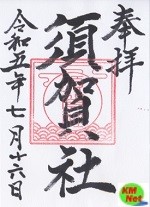 奉拝
須賀社
令和五年七月十六日
KM
Net